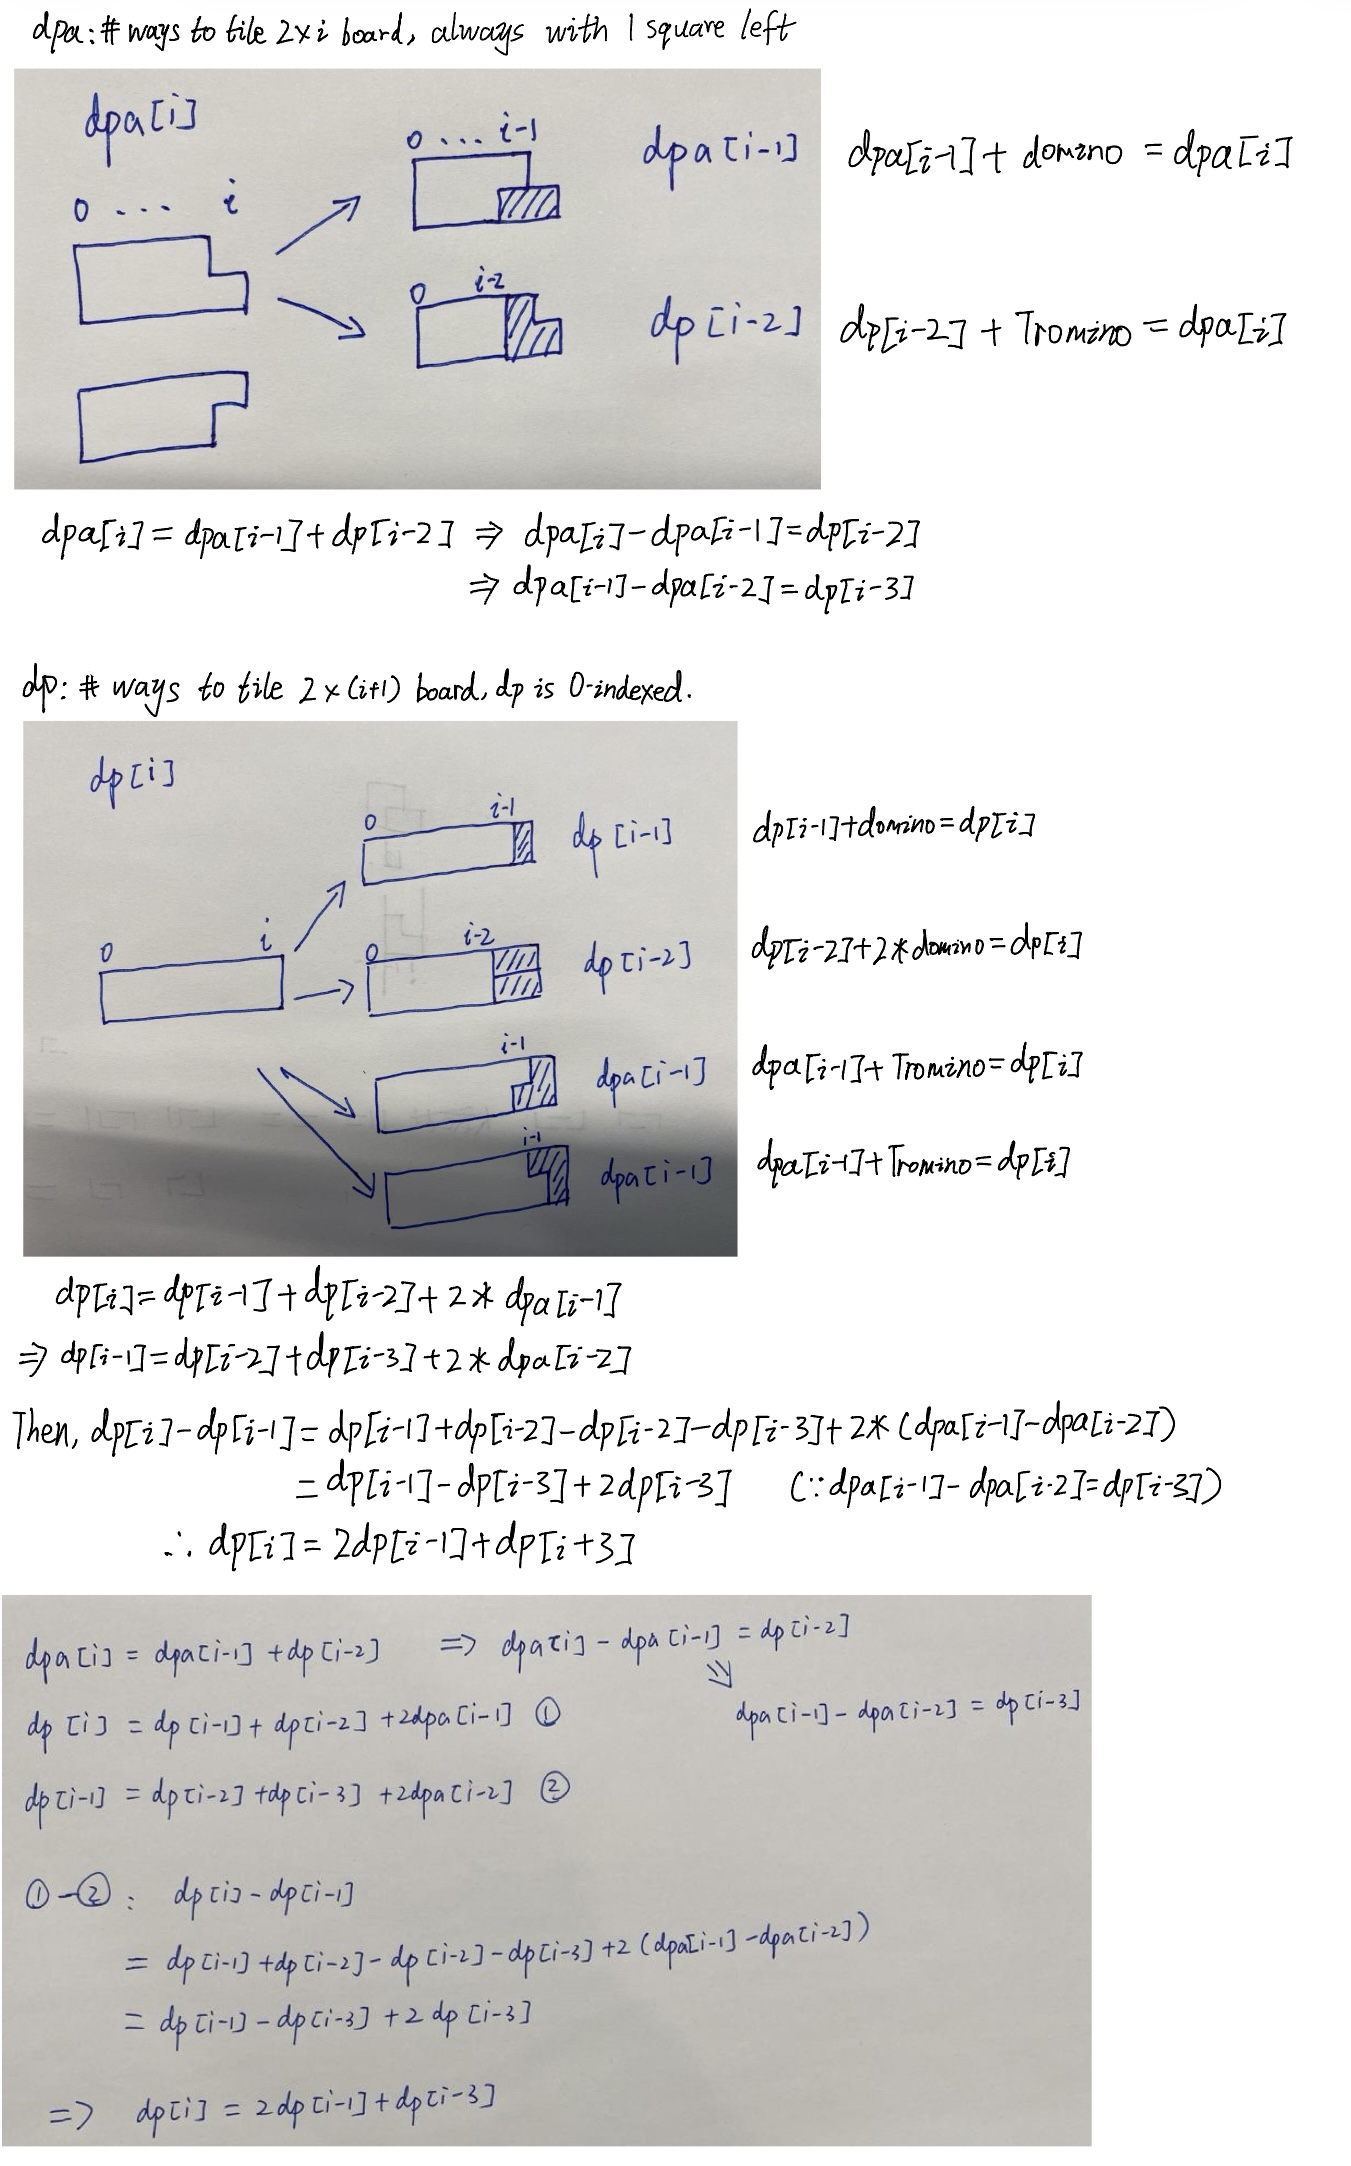 dpa: # ways to tile 2×i board, always with 1 square left
dpa[i]
0 ... i
0 ... i-1
dpa[i-1]
dpa[i-1] + domino = dpa[i]
0 i-2
dp[i-2]
dp[i-2] + Tromino = dpa[i]
dpa[i] = dpa[i-1] + dp[i-2] ⇒ dpa[i] - dpa[i-1] = dp[i-2]
⇒ dpa[i-1] - dpa[i-2] = dp[i-3]
dp: # ways to tile 2×(i+1) board, dp is 0-indexed.
dp[i]
0 i
0 i-1
dp[i-1]
dp[i-1]+domino=dp[i]
0 i-2
dp[i-2]
dp[i-2]+2*domino=dp[i]
i-1
dpa[i-1]
dpa[i-1]+Tromino=dp[i]
i-1
dpa[i-1]
dpa[i-1]+Tromino=dp[i]
dp[i]=dp[i-1]+dp[i-2]+2* dpa[i-1]
⇒ dp[i-1]=dp[i-2]+dp[i-3]+2* dpa[i-2]
Then, dp[i]-dp[i-1]= dp[i-1]+dp[i-2]-dp[i-2]-dp[i-3]+2*(dpa[i-1]-dpa[i-2])
= dp[i-1]-dp[i-3]+2dp[i-3] (∵dpa[i-1]-dpa[i-2]=dp[i-3])
∴ dp[i] = 2dp[i-1]+dp[i+3]
dpa[i] = dpa[i-1] + dp[i-2] => dpa[i] - dpa[i-1] = dp[i-2]
⇓
dpa[i-1] - dpa[i-2] = dp[i-3]
dp[i] = dp[i-1] + dp[i-2] + 2dpa[i-1] ①
dp[i-1] = dp[i-2] + dp[i-3] + 2dpa[i-2] ②
①-②: dp[i] - dp[i-1]
= dp[i-1] + dp[i-2] - dp[i-2] - dp[i-3] + 2(dpa[i-1] - dpa[i-2])
= dp[i-1] - dp[i-3] + 2 dp[i-3]
=> dp[i] = 2dp[i-1] + dp[i-3]